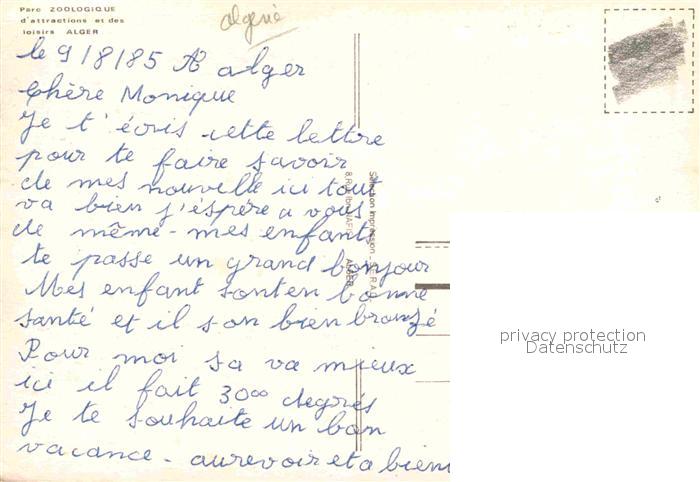 Parc ZOOLOGIQUE
d'attractions et des
loisirs ALGER
algerie
le 9/8/85 A alger
Chère Monique
Je t'écris cette lettre
pour te faire savoir
de mes nouvelle ici tout
va bien j'éspère a vous
de même - mes enfants
te passe un grand bonjour
Mes enfant sont en bonne
santé et il son bien bronzé
Pour moi sa va mieux
ici il fait 30°° degrés
Je te souhaite un bon
vacance - aurevoir et a bien
Sélection Impression
ALGER
privacy protection
Datenschutz